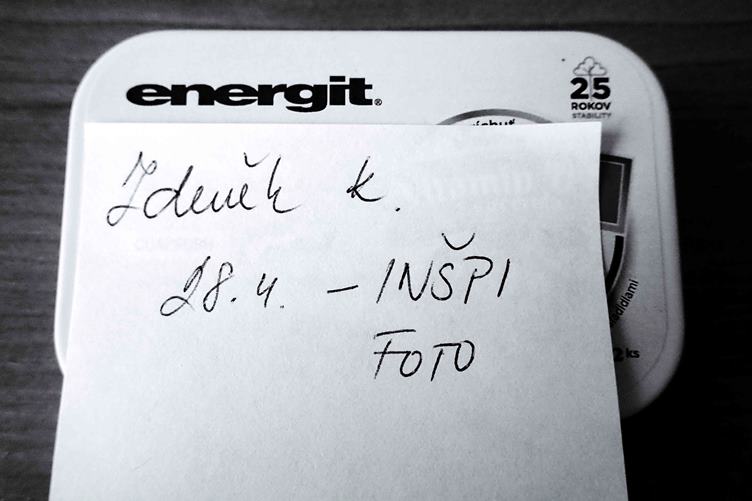 energit®
25
ROKOV
STABILITY
Zdeněk K.
28.4. – INŠPI
FOTO
ks